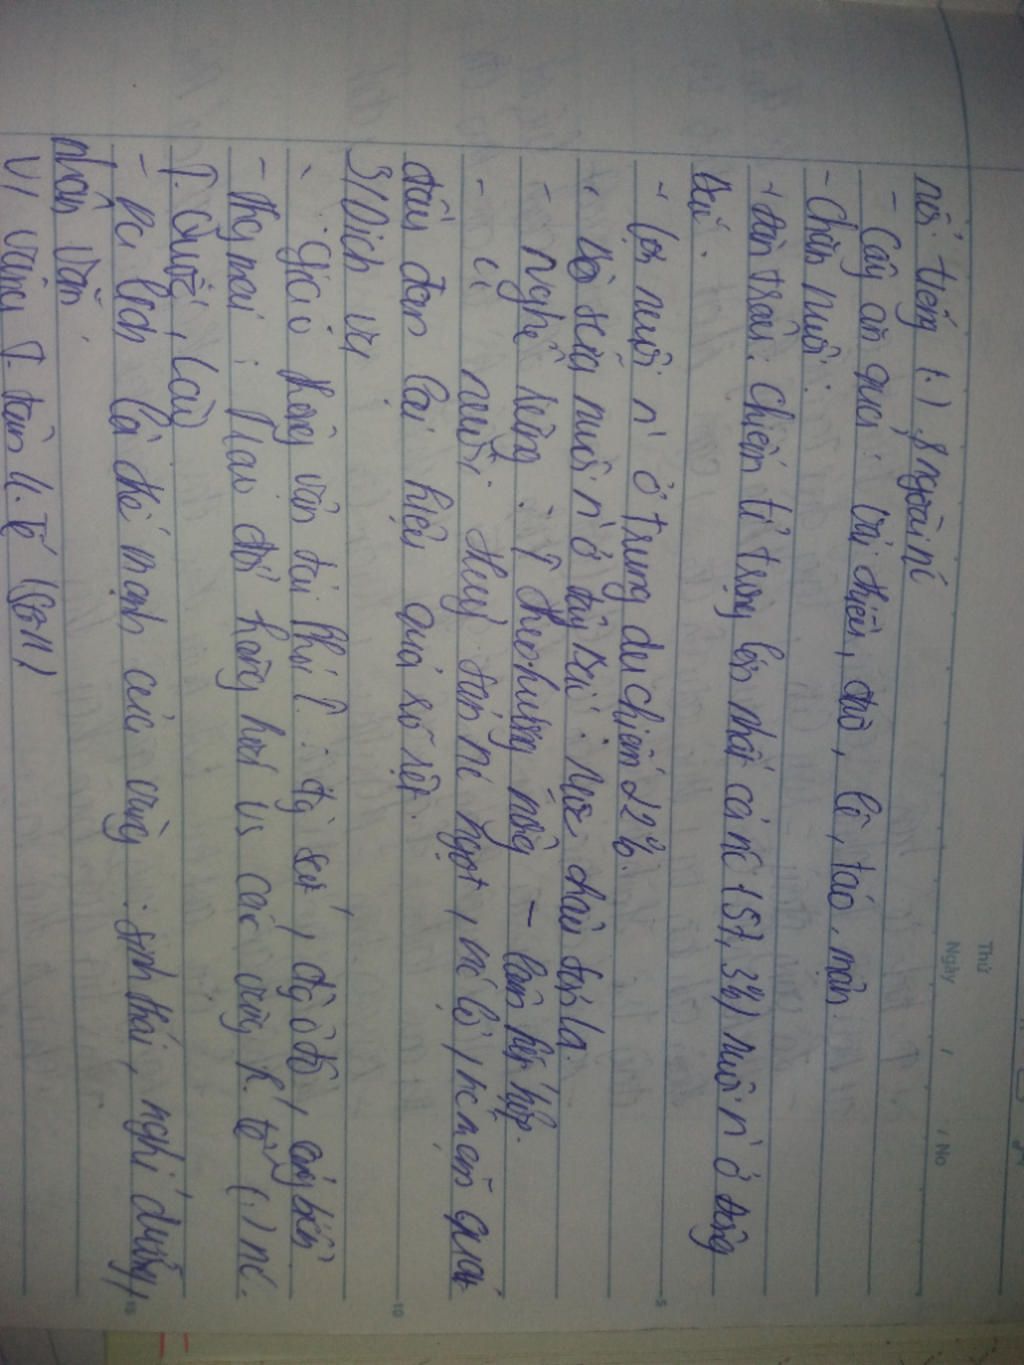 Thứ
Ngày / / No
nổi tiếng t.) & ngoài nc
- Cây ăn quả: vải thiều, đào, lê, táo, mận.
- Chăn nuôi:
+ đàn trâu: chiếm tỉ trọng lớn nhất cả nc (57,3%) nuôi n' ở đông
bắc.
+ lợn nuôi n' ở trung du chiếm 22%.
+ bò sữa nuôi n' ở tây bắc: Mộc châu Sơn la.
- nghề rừng: theo hướng nông - lâm kết hợp.
- nuôi thuỷ sản nc ngọt, nc lợ, nc mặn quảng
đầu đem lại hiệu quả rõ rệt.
3/ Dịch vụ
Giao thông vận tải phát: đg sắt, đg ô tô, cảng biển
- thg mại: trao đổi hàng hoá vs các vùng k. tế (.) nc.
T. Quốc, Lào
- Du lịch là thế mạnh của vùng: sinh thái, nghỉ dưỡng,
nhân văn.
V/ vùng T. tâm k. tế (SGK)
5
10
15